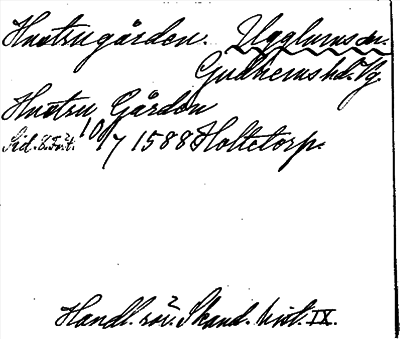 Hustrugården. Ugglums sn.
Gudhems hd. Vg.
Hustru Gården
Sid. 10/7 1588 Holtetorp.
Handl. rör. Skand. hist. IX.